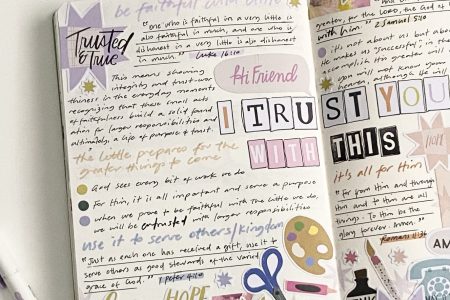 be faithful with little
Trusted & True
"one who is faithful in a very little is
also faithful in much, and one who is
dishonest in a very little is also dishonest
in much." Luke 16:10
This means showing
integrity and trust-wor
thiness in the everyday moments
recognizing that these small acts
of faithfulness build a solid found
ation for larger responsibilities and
ultimately, a life of purpose & trust.
Hi Friend
I TRUST YOU
WITH THIS
the little prepares for the
greater things to come
God sees every bit of work we do
For him, it is all important and serve a purpose
when we prove to be faithful with the little we do,
we will be entrusted with larger responsibilities
use it to serve others/kingdom
"Just as each one has received a gift, use it to
serve others as good stewards of the varied
grace of God." 1 Peter 4:10
HOPE
greater, for the LORD, the God of
with him." 2 Samuel 5:10
it's not about us but about
He makes us successful; in the
accomplish
you will not know
although He will
HOPE
it's all for Him
"For from Him and through
Him and to Him are all
things. To Him be the
glory forever. Amen."
Romans 11:36
AM